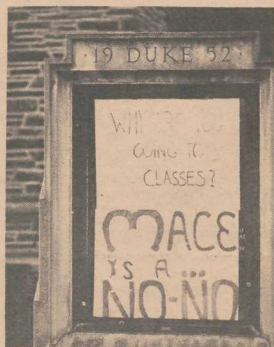 19 DUKE 52
WHY ARE YOU
GOING TO
CLASSES?
MACE
IS A ...
NO-NO